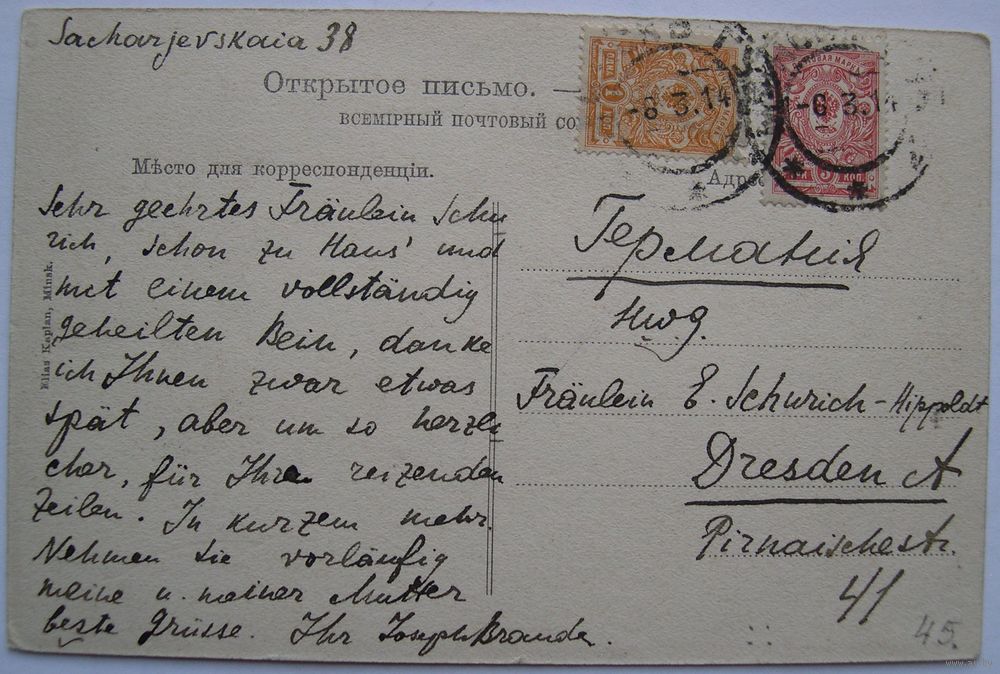 Sacharjevskaia 38
Открытое письмо. —
ВСЕМІРНЫЙ ПОЧТОВЫЙ СО
Мѣсто для корреспонденціи.
Адрес
-8 3.14
-8 3.14
1
3 КОП.
Elias Kaplan, Minsk.
Sehr geehrtes Fräulein Schu
rich, schon zu Haus' und
mit einem vollständig
geheilten Bein, danke
ich Ihnen zwar etwas
spät, aber um so herzli
cher, für Ihre reizenden
Zeilen. In kurzem mehr.
Nehmen Sie vorläufig
meine u. meiner Mutter
beste Grüsse. Ihr Joseph Braude.
Германія
Hwg.
Fräulein E. Schurich-Hippoldt
Dresden A
Pirnaischestr.
41
45.